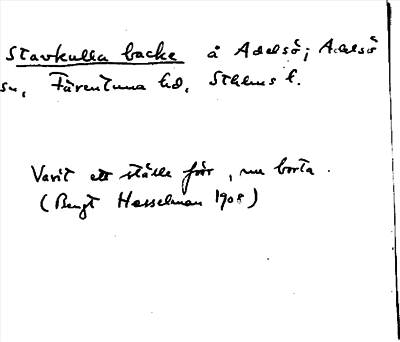 Stavkulla backe å Adelsö; Adelsö
sn, Färentuna hd, Sthlms l.
Varit ett ställe förr, nu borta.
(Bengt Hesselman 1908)